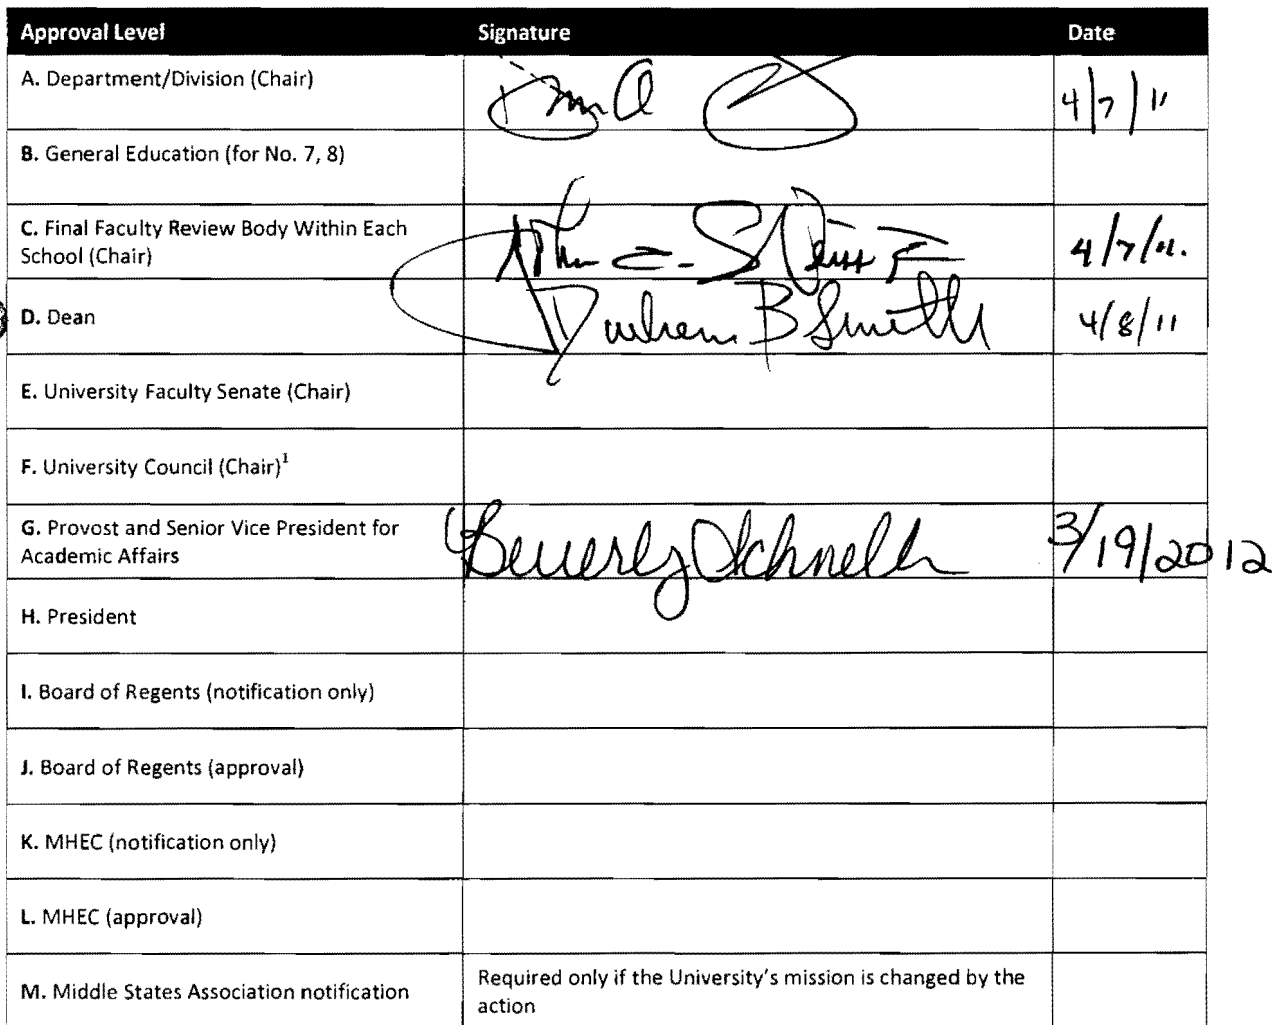 Approval Level Signature Date
A. Department/Division (Chair) 4/7/11
B. General Education (for No. 7, 8)
C. Final Faculty Review Body Within Each
School (Chair) 4/7/11.
D. Dean B Smith 4/8/11
E. University Faculty Senate (Chair)
F. University Council (Chair)¹
G. Provost and Senior Vice President for
Academic Affairs Beverly Schnell 3/19/2012
H. President
I. Board of Regents (notification only)
J. Board of Regents (approval)
K. MHEC (notification only)
L. MHEC (approval)
M. Middle States Association notification Required only if the University's mission is changed by the
action